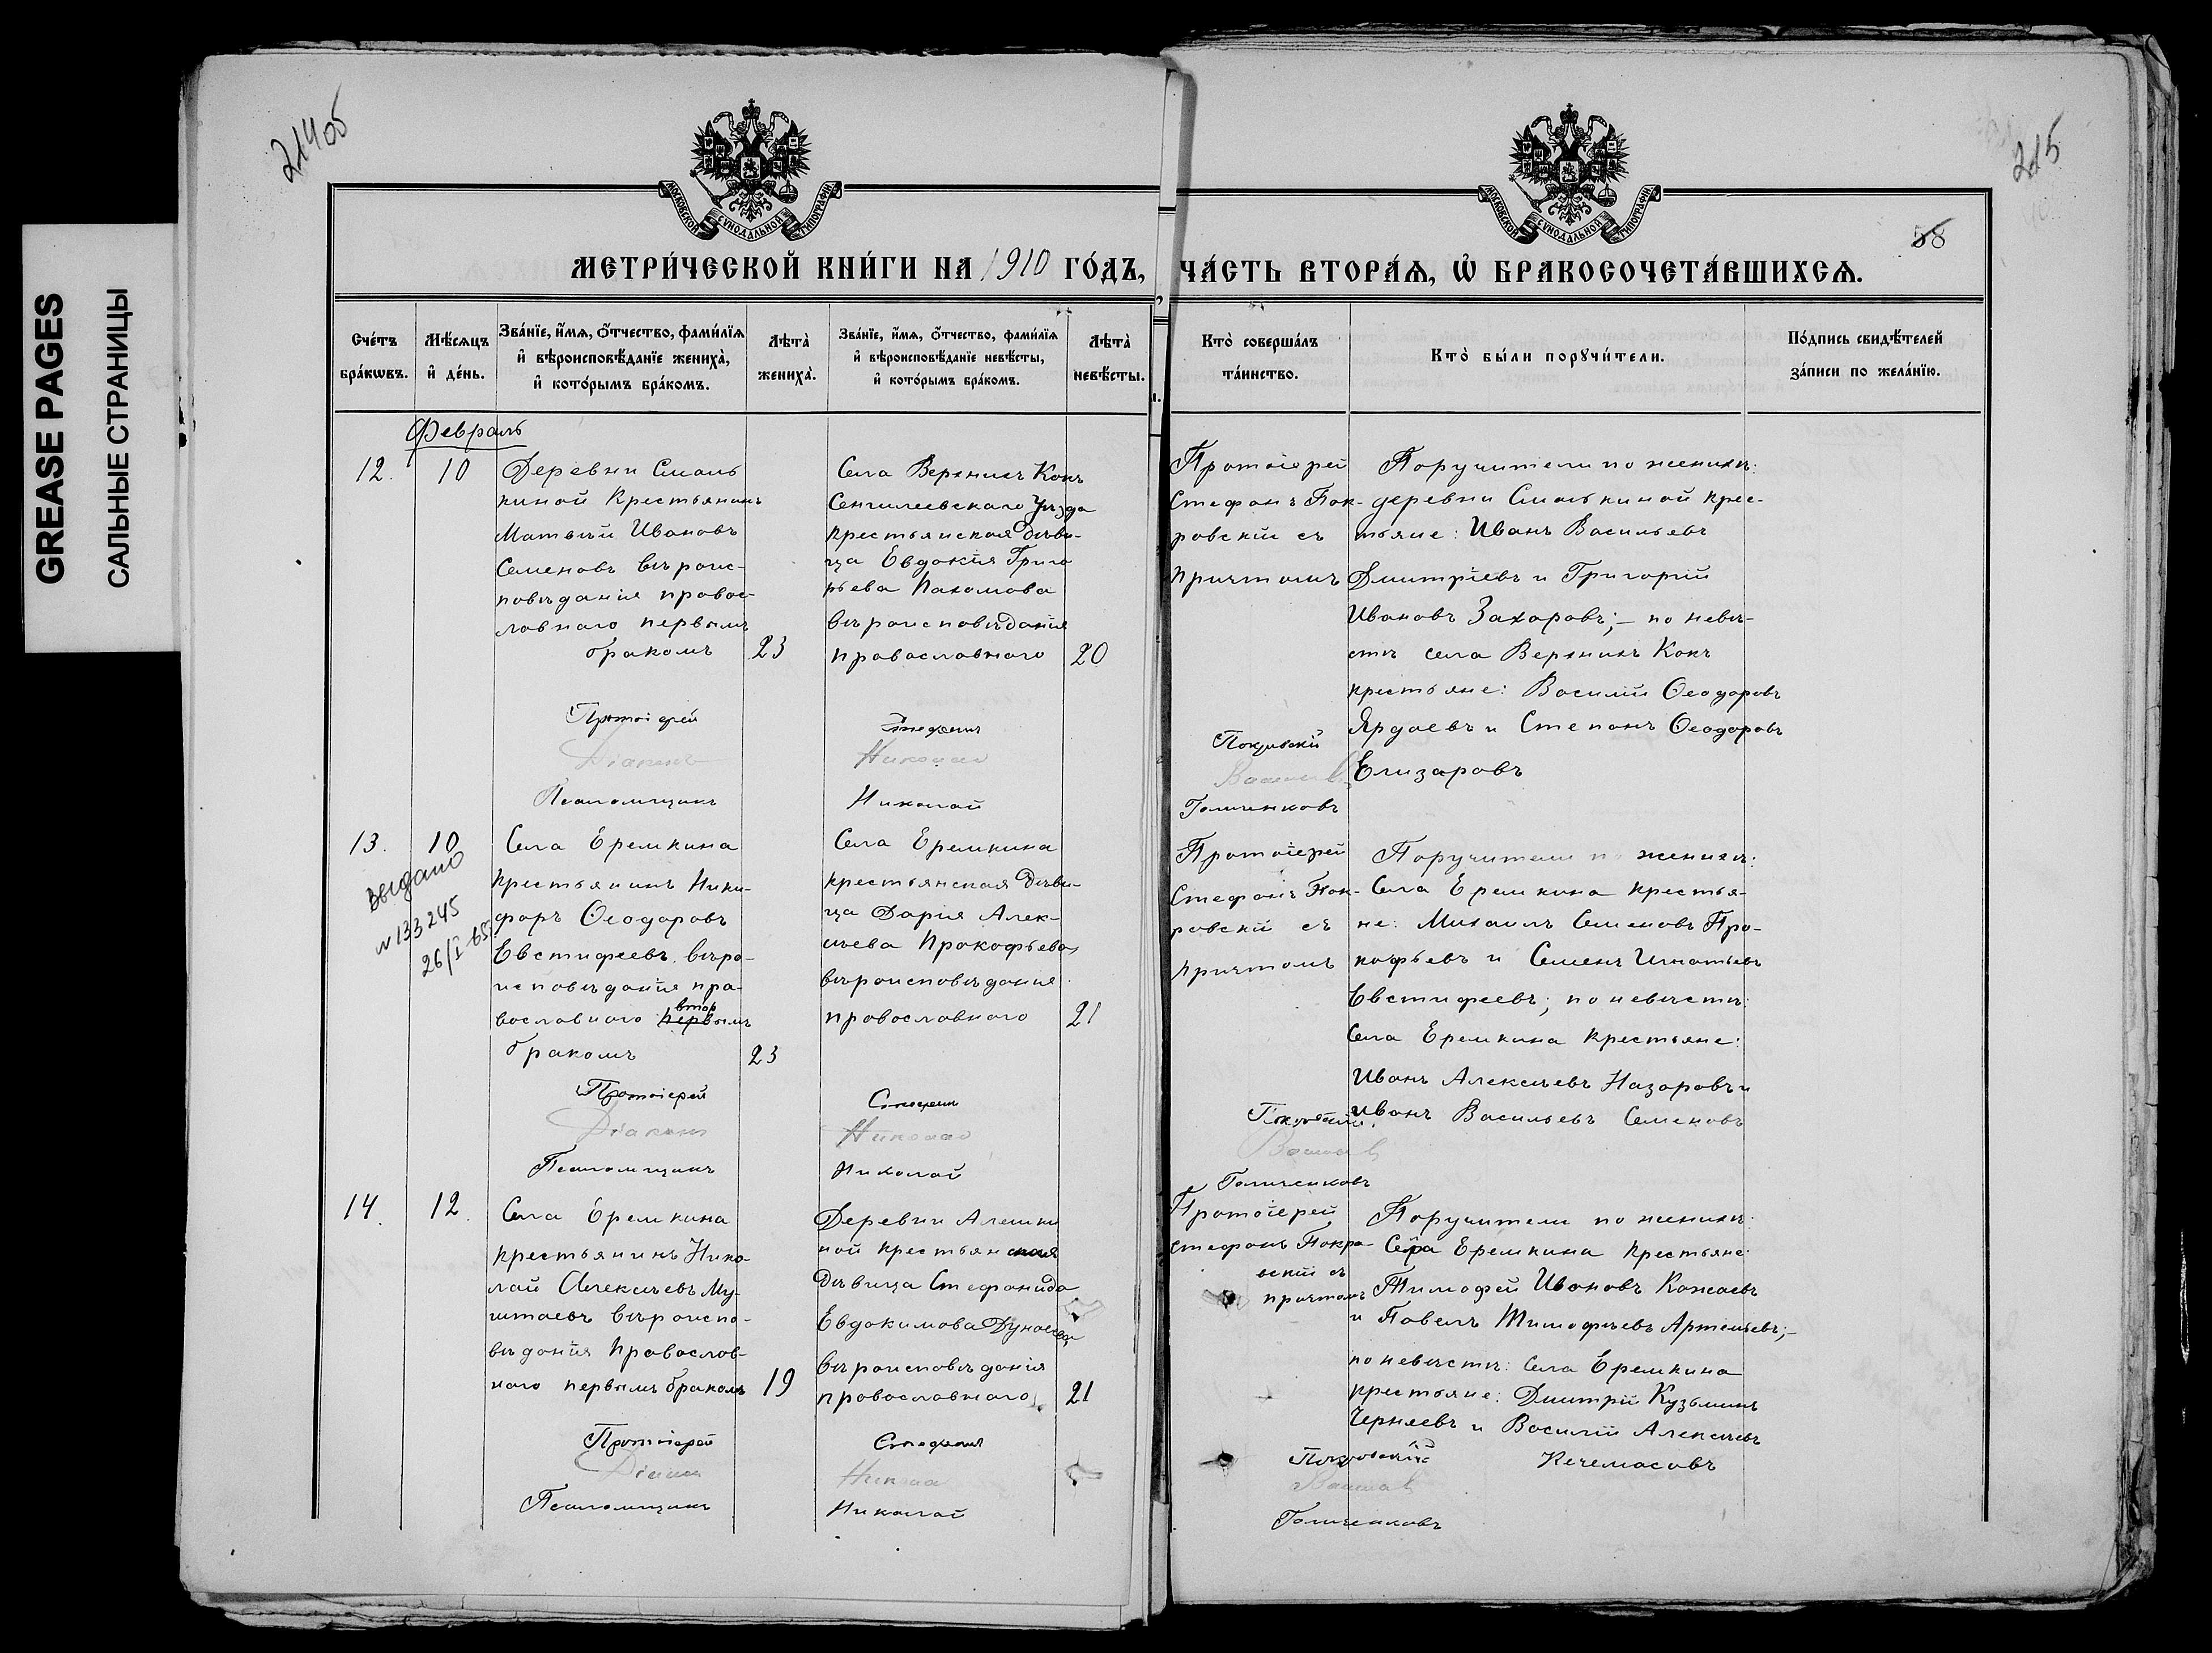 GREASE PAGES
САЛЬНЫЕ СТРАНИЦЫ
214об
215
58
МОСКОВСКОЙ СѴНОДАЛЬНОЙ ТИПОГРАФІИ
МОСКОВСКОЙ СѴНОДАЛЬНОЙ ТИПОГРАФІИ
МЕТРИ́ЧЕСКОЙ КНИ́ГИ НА 1910 ГО́ДЪ,
ЧА́СТЬ ВТОРА́Ѧ, Ѡ҆ БРАКОСОЧЕТА́ВШИХСѦ.
Сче́тъ
бра́кѡвъ.
Мѣ́сѧцъ
и҆ де́нь.
Зва́нїе, и҆́мѧ, ѻ҆́тчество, фами́лїѧ
и҆ вѣроисповѣ́данїе жениха̀,
и҆ кото́рымъ бра́комъ.
Лѣта̀
жениха̀.
Зва́нїе, и҆́мѧ, ѻ҆́тчество, фами́лїѧ
и҆ вѣроисповѣ́данїе невѣ́сты,
и҆ кото́рымъ бра́комъ.
Лѣта̀
невѣ́сты.
Кто̀ соверша́лъ
та́инство.
Кто̀ бы́ли порꙋчи́тели.
По́дпись свидѣ́телей
за́писи по жела́нїю.
Февраль
12.
10
Деревни Смоль
киной Крестьянинъ
Матвѣй Ивановъ
Семеновъ вѣроис-
повѣданія правос-
лавнаго первымъ
бракомъ
23
Села Верхнихъ Кокъ
Сенгилеевскаго Уѣзда
крестьянская дѣви-
ца Евдокія Григо
рьева Пахомова
вѣроисповѣданія
православнаго
20
Протоіерей
Стефанъ Пок-
ровскій съ
причтомъ
Поручители по женихѣ:
деревни Смолькиной крес-
тьяне: Иванъ Васильевъ
Дмитріевъ и Григорій
Ивановъ Захаровъ; – по невѣ-
стѣ села Верхнихъ Кокъ
крестьяне: Василій Ѳеодоровъ
Ярдаевъ и Степанъ Ѳеодоровъ
Елизаровъ
Протоіерей Стефанъ Покровскій
Діаконъ Николай
Псаломщикъ Николай Голиченковъ
13.
10
выдано
№133245
26/I-65
Села Еремкина
крестьянинъ Ники-
форъ Ѳеодоровъ
Евстифеевъ вѣро-
исповѣданія пра-
втор
вославнаго первымъ
бракомъ
23
Села Еремкина
крестьянская дѣви-
ца Дарія Алек-
сѣева Прокофьева,
вѣроисповѣданія
православнаго
21
Протоіерей
Стефанъ Пок-
ровскій съ
причтомъ
Поручители по женихѣ:
Села Еремкина крестья-
не: Михаилъ Семеновъ Про-
кофьевъ и Семенъ Игнатьевъ
Евстифеевъ; по невѣстѣ:
Села Еремкина крестьяне:
Иванъ Алексѣевъ Назаровъ и
Иванъ Васильевъ Семеновъ
Протоіерей Стефанъ Покровскій
Діаконъ Николай
Псаломщикъ Николай Голиченковъ
14.
12.
Села Еремкина
крестьянинъ Нико-
лай Алексѣевъ Му-
штаевъ вѣроиспо-
вѣданія Православ-
наго первымъ бракомъ
19
Деревни Алешки
ной крестьянская
дѣвица Стефанида
Евдокимова Дунаева,
вѣроисповѣданія
православнаго
21
Протоіерей
Стефанъ Покро-
вскій съ
причтомъ
Поручители по женихѣ:
Села Еремкина крестьяне:
Тимофей Ивановъ Кажаевъ
и Павелъ Тимофѣевъ Артемьевъ; –
по невѣстѣ: Села Еремкина
крестьяне: Дмитрій Кузьминъ
Черняевъ и Василій Алексѣевъ
Кечемасовъ
Протоіерей Стефанъ Покровскій
Николай
Псаломщикъ Николай Голиченковъ